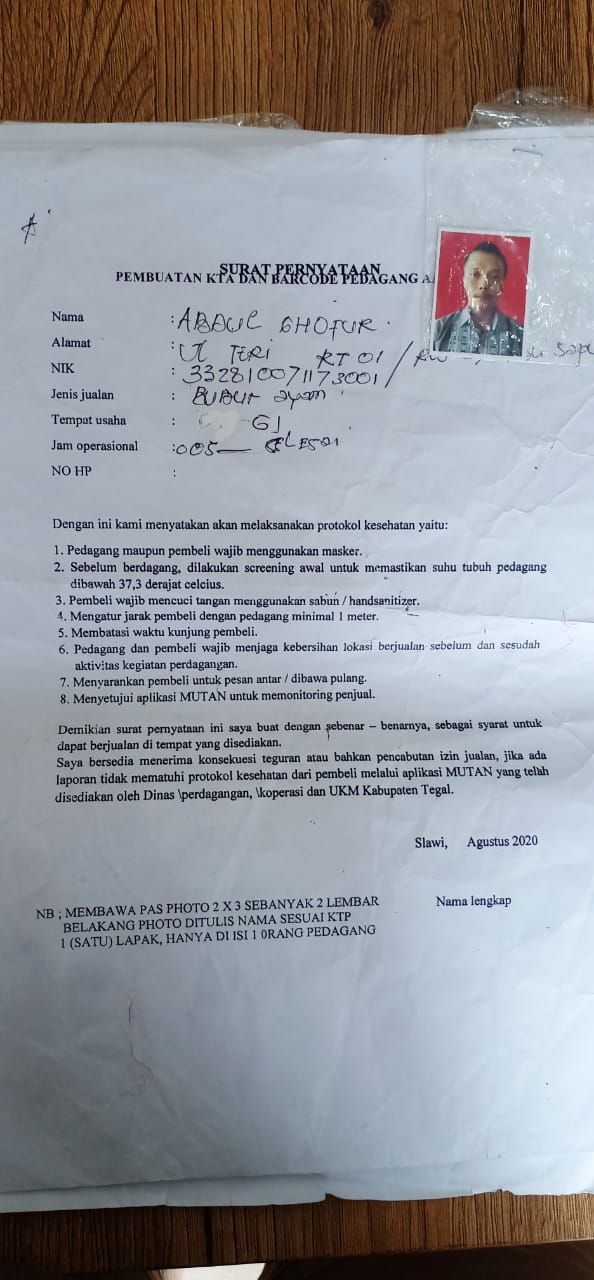 SURAT PERNYATAAN
PEMBUATAN KTA DAN BARCODE PEDAGANG A
Nama : ABDUL GHOFUR.
Alamat : RT 01 /
NIK : 3328100711173001
Jenis jualan : BUBUR ayam
Tempat usaha : G1
Jam operasional : 005 — SELESAI
NO HP :
Dengan ini kami menyatakan akan melaksanakan protokol kesehatan yaitu:
1. Pedagang maupun pembeli wajib menggunakan masker.
2. Sebelum berdagang, dilakukan screening awal untuk memastikan suhu tubuh pedagang
dibawah 37,3 derajat celcius.
3. Pembeli wajib mencuci tangan menggunakan sabun / handsanitizer.
4. Mengatur jarak pembeli dengan pedagang minimal 1 meter.
5. Membatasi waktu kunjung pembeli.
6. Pedagang dan pembeli wajib menjaga kebersihan lokasi berjualan sebelum dan sesudah
aktivitas kegiatan perdagangan.
7. Menyarankan pembeli untuk pesan antar / dibawa pulang.
8. Menyetujui aplikasi MUTAN untuk memonitoring penjual.
Demikian surat pernyataan ini saya buat dengan sebenar – benarnya, sebagai syarat untuk
dapat berjualan di tempat yang disediakan.
Saya bersedia menerima konsekuesi teguran atau bahkan pencabutan izin jualan, jika ada
laporan tidak mematuhi protokol kesehatan dari pembeli melalui aplikasi MUTAN yang telah
disediakan oleh Dinas \perdagangan, \koperasi dan UKM Kabupaten Tegal.
Slawi, Agustus 2020
Nama lengkap
NB ; MEMBAWA PAS PHOTO 2 X 3 SEBANYAK 2 LEMBAR
BELAKANG PHOTO DITULIS NAMA SESUAI KTP
1 (SATU) LAPAK, HANYA DI ISI 1 0RANG PEDAGANG